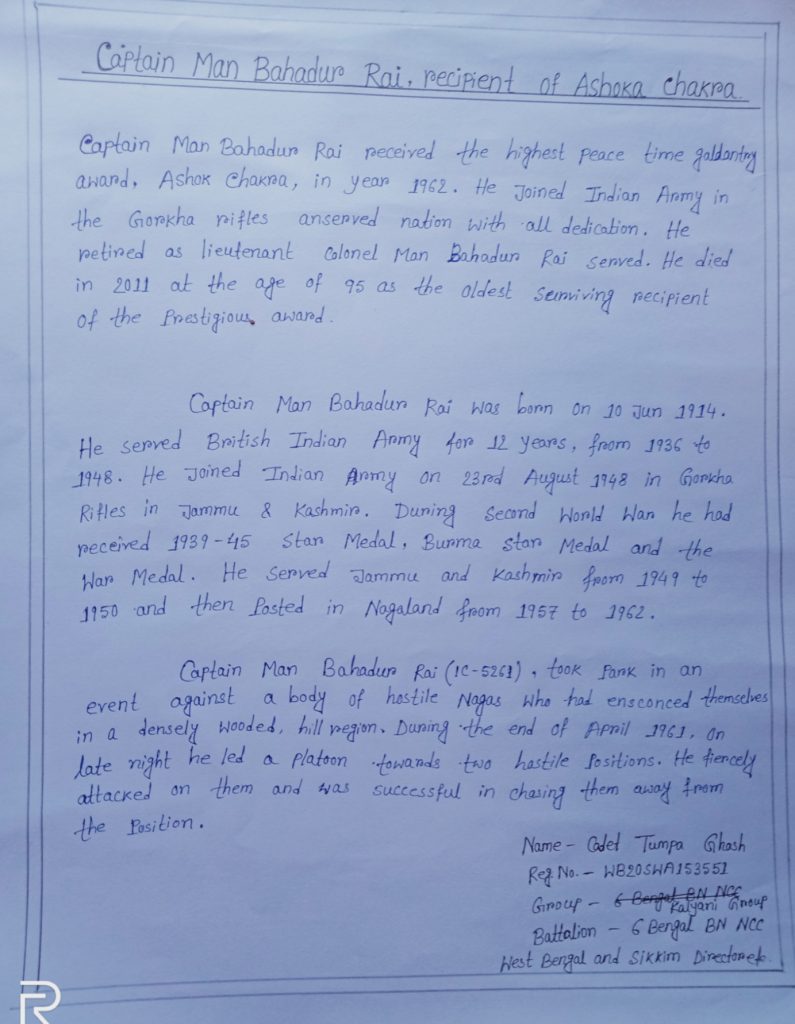 Captain Man Bahadur Rai, recipient of Ashoka Chakra
Captain Man Bahadur Rai received the highest peace time galdantry
award, Ashok Chakra, in year 1962. He Joined Indian Army in
the Gorkha rifles anserved nation with all dedication. He
retired as lieutenant Colonel Man Bahadur Rai served. He died
in 2011 at the age of 95 as the oldest surviving recipient
of the Prestigious award.
Captain Man Bahadur Rai was born on 10 Jun 1914.
He served British Indian Army for 12 years, from 1936 to
1948. He Joined Indian Army on 23rd August 1948 in Gorkha
Rifles in Jammu & Kashmir. During Second World War he had
received 1939-45 Star Medal, Burma Star Medal and the
War Medal. He served Jammu and Kashmir from 1949 to
1950 and then Posted in Nagaland from 1957 to 1962.
Captain Man Bahadur Rai (IC-5261), took Park in an
event against a body of hostile Nagas who had ensconced themselves
in a densely wooded, hill region. During the end of April 1961, on
late night he led a Platoon towards two hostile Positions. He fiercely
attacked on them and was successful in chasing them away from
the Position.
Name - Cadet Tumpa Ghash
Reg No. - WB20SWA153551
Group - 6 Bengal BN NCC Kalyani Group
Battalion - 6 Bengal BN NCC
West Bengal and Sikkim Directorete.
R